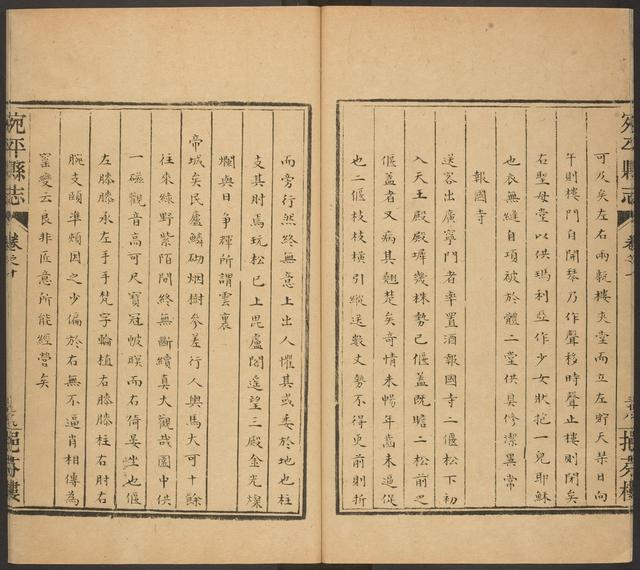 宛平縣志
卷之十
可及矣左右兩甎樓夾堂而立左貯天琹日向
午則樓門自開琴乃作聲移時聲止樓則閉矣
右聖母堂以供瑪利亞作少女狀抱一兒耶穌
也衣無縫自項被於體二堂供具修潔異常
報國寺
送客出廣寧門者率置酒報國寺二偃松下初
入天王殿殿墀幾株勢已偃蓋既瞻二松前之
偃蓋者又病其翹楚矣奇情未暢年齒未逼從
也二偃枝枝橫引縱送數丈勢不得更前則折
而旁行然終無意上出人懼其或委於地也柱
支其肘焉玩松已上毘盧閣遙望三殿金光燦
爛與日爭輝所謂雲裏
帝城矣民廬鱗砌烟樹參差行人輿馬大可十餘
往來綠野紫陌間終無斷續真大觀哉圖中供
一磁觀音高可尺寶冠帔瞑而右倚晏坐也偃
左膝膝承左手手梵字輪植右膝膝柱右肘右
腕支頤準頰因之少偏於右無不逼肖相傳為
窰變云良非匠意所能經營矣
宛平縣志
卷之十